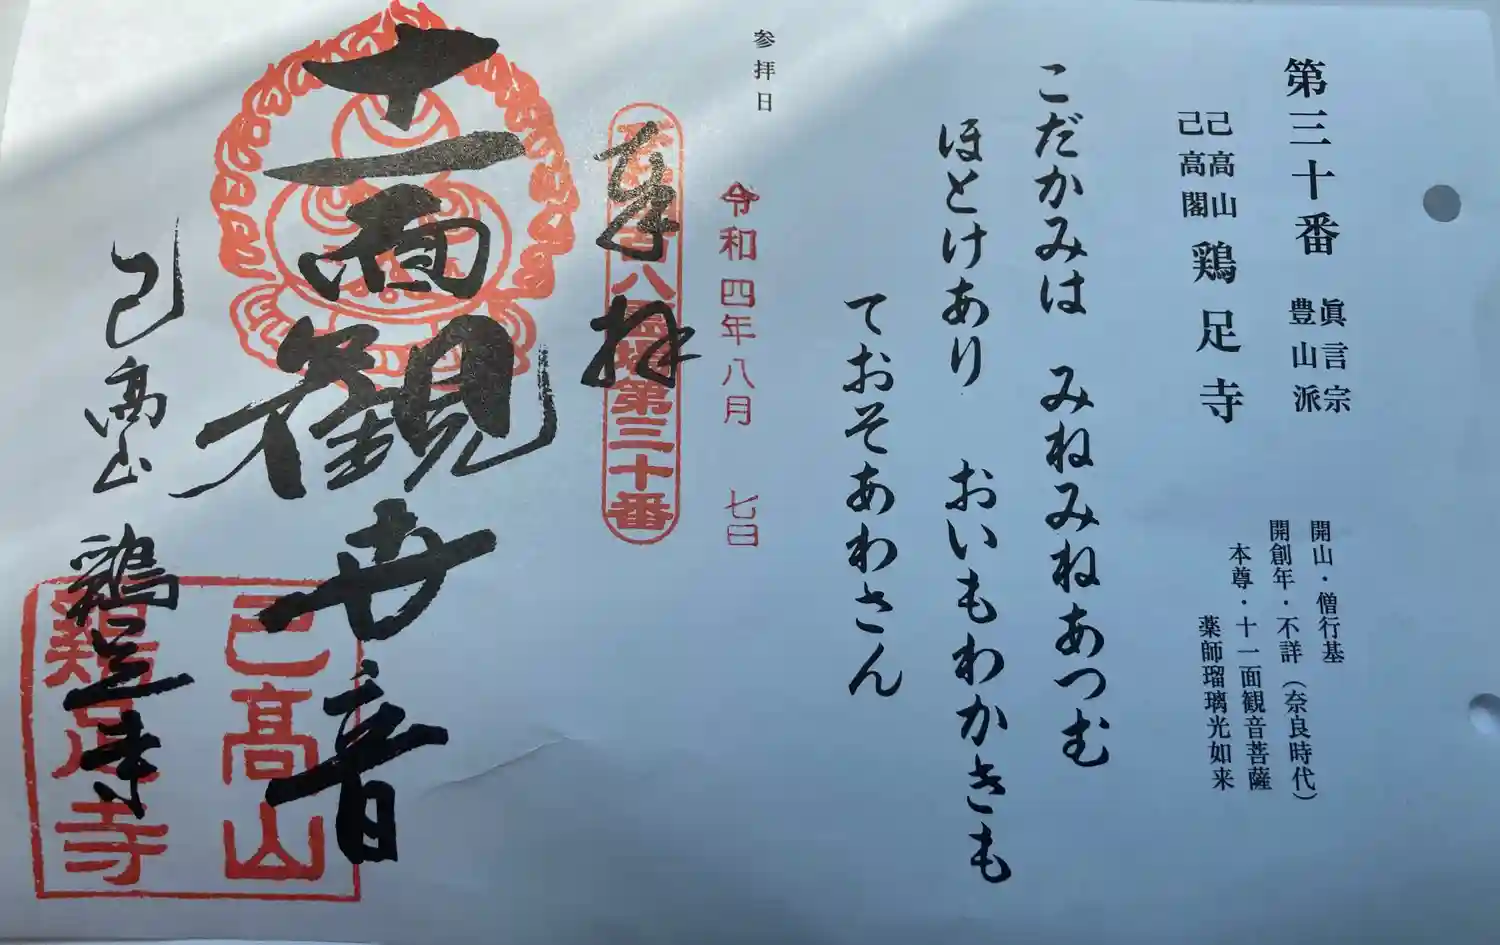 第三十番
眞言宗
豊山派
己高山
己高閣
鶏足寺
開山・僧行基
開創年・不詳(奈良時代)
本尊・十一面観音菩薩
薬師瑠璃光如来
こだかみは　みねみねあつむ
ほとけあり　おいもわかきも
ておそあわさん
参拝日
令和四年八月　七日
奉拝
八霊場第三十番
十一面観世音
己高山　鶏足寺
己高山
鶏足寺